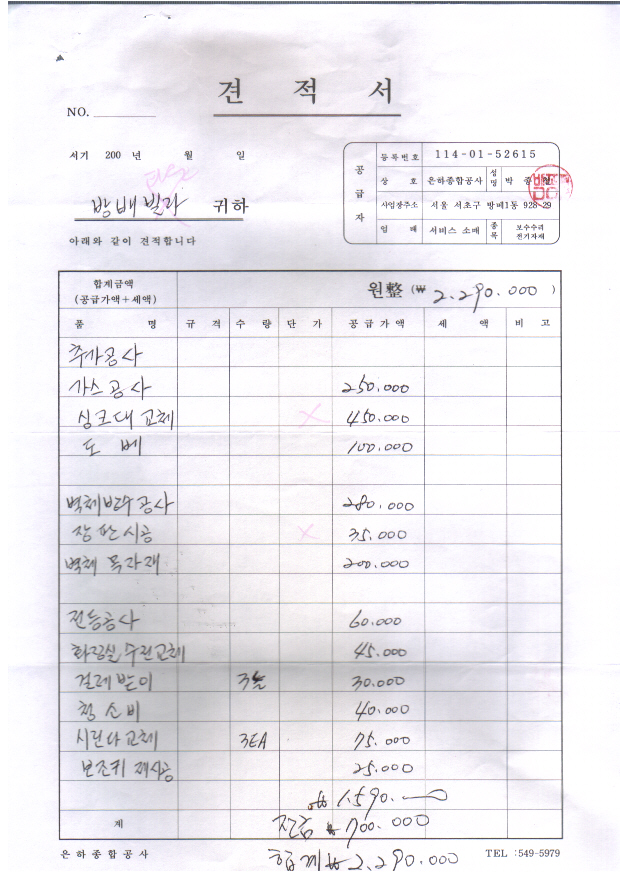 견 적 서
NO.
서기 200 년 월 일
방배빌라 귀하
아래와 같이 견적합니다
공급자
등록번호 114-01-52615
상 호 은하종합공사 성명 박 종
사업장주소 서울 서초구 방배1동 928-29
업 태 서비스 소매 종목 보수수리 전기자재
합계금액 (공급가액+세액) 원整 (₩ 2.290.000 )
품 명 규 격 수 량 단 가 공급가액 세 액 비 고
추가공사
가스공사 250.000
싱크대교체 × 450.000
도 베 100.000
벽체방수공사 280.000
장판시공 × 35.000
벽체 목자재 200.000
전등공사 60.000
화장실수전교체 45.000
걸레받이 30.000
청소비 40.000
시린다교체 3EA 75.000
보조키 재시공 25.000
₩ 1.590.
계 잔금 ₩ 700.000
은하종합공사 합계 ₩ 2.290.000 TEL :549-5979